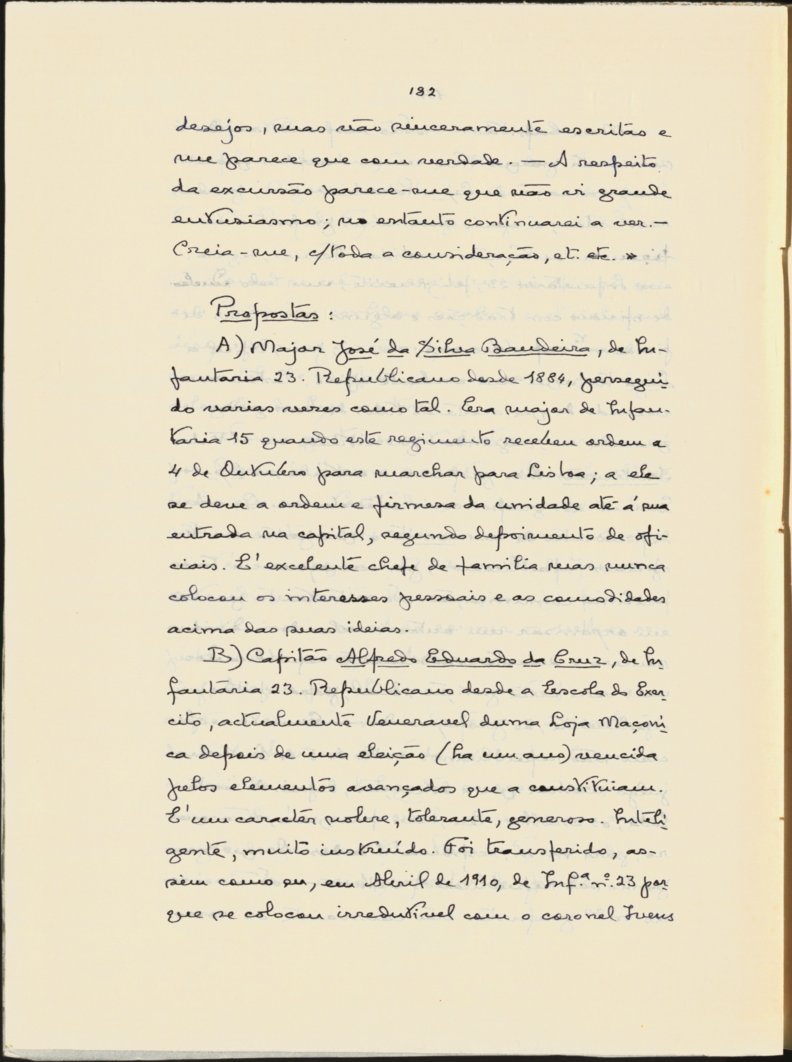 132
desejos, mas vão sinceramente escritas e
me parece que com verdade. — A respeito
da excursão parece-me que não vi grande
entusiasmo; no entanto continuarei a ver. —
Creia-me, c/ toda a consideração, et. etc. »
Propostas :
A) Major José da Silva Bandeira, de In-
fantaria 23. Republicano desde 1884, persegui-
do varias vezes como tal. Era major de Infan-
taria 15 quando este regimento recebeu ordem a
4 de Outubro para marchar para Lisboa; a ele
se deve a ordem e firmesa da unidade até á sua
entrada na capital, segundo depoimento de ofi-
ciais. E' excelente chefe de familia mas nunca
colocou os interesses pessoais e as comodidades
acima das suas ideias.
B) Capitão Alfredo Eduardo da Cruz, de In-
fantaria 23. Republicano desde a Escola do Exer-
cito, actualmente Veneravel duma Loja Maçoni-
ca depois de uma eleição (ha um ano) vencida
pelos elementos avançados que a constituiam.
E' um caractér nobre, tolerante, generoso. Inteli-
gente, muito instruído. Foi transferido, as-
sim como eu, em Abril de 1910, de Inf.ª nº. 23 por
que se colocou irredutivel com o coronel Ivens